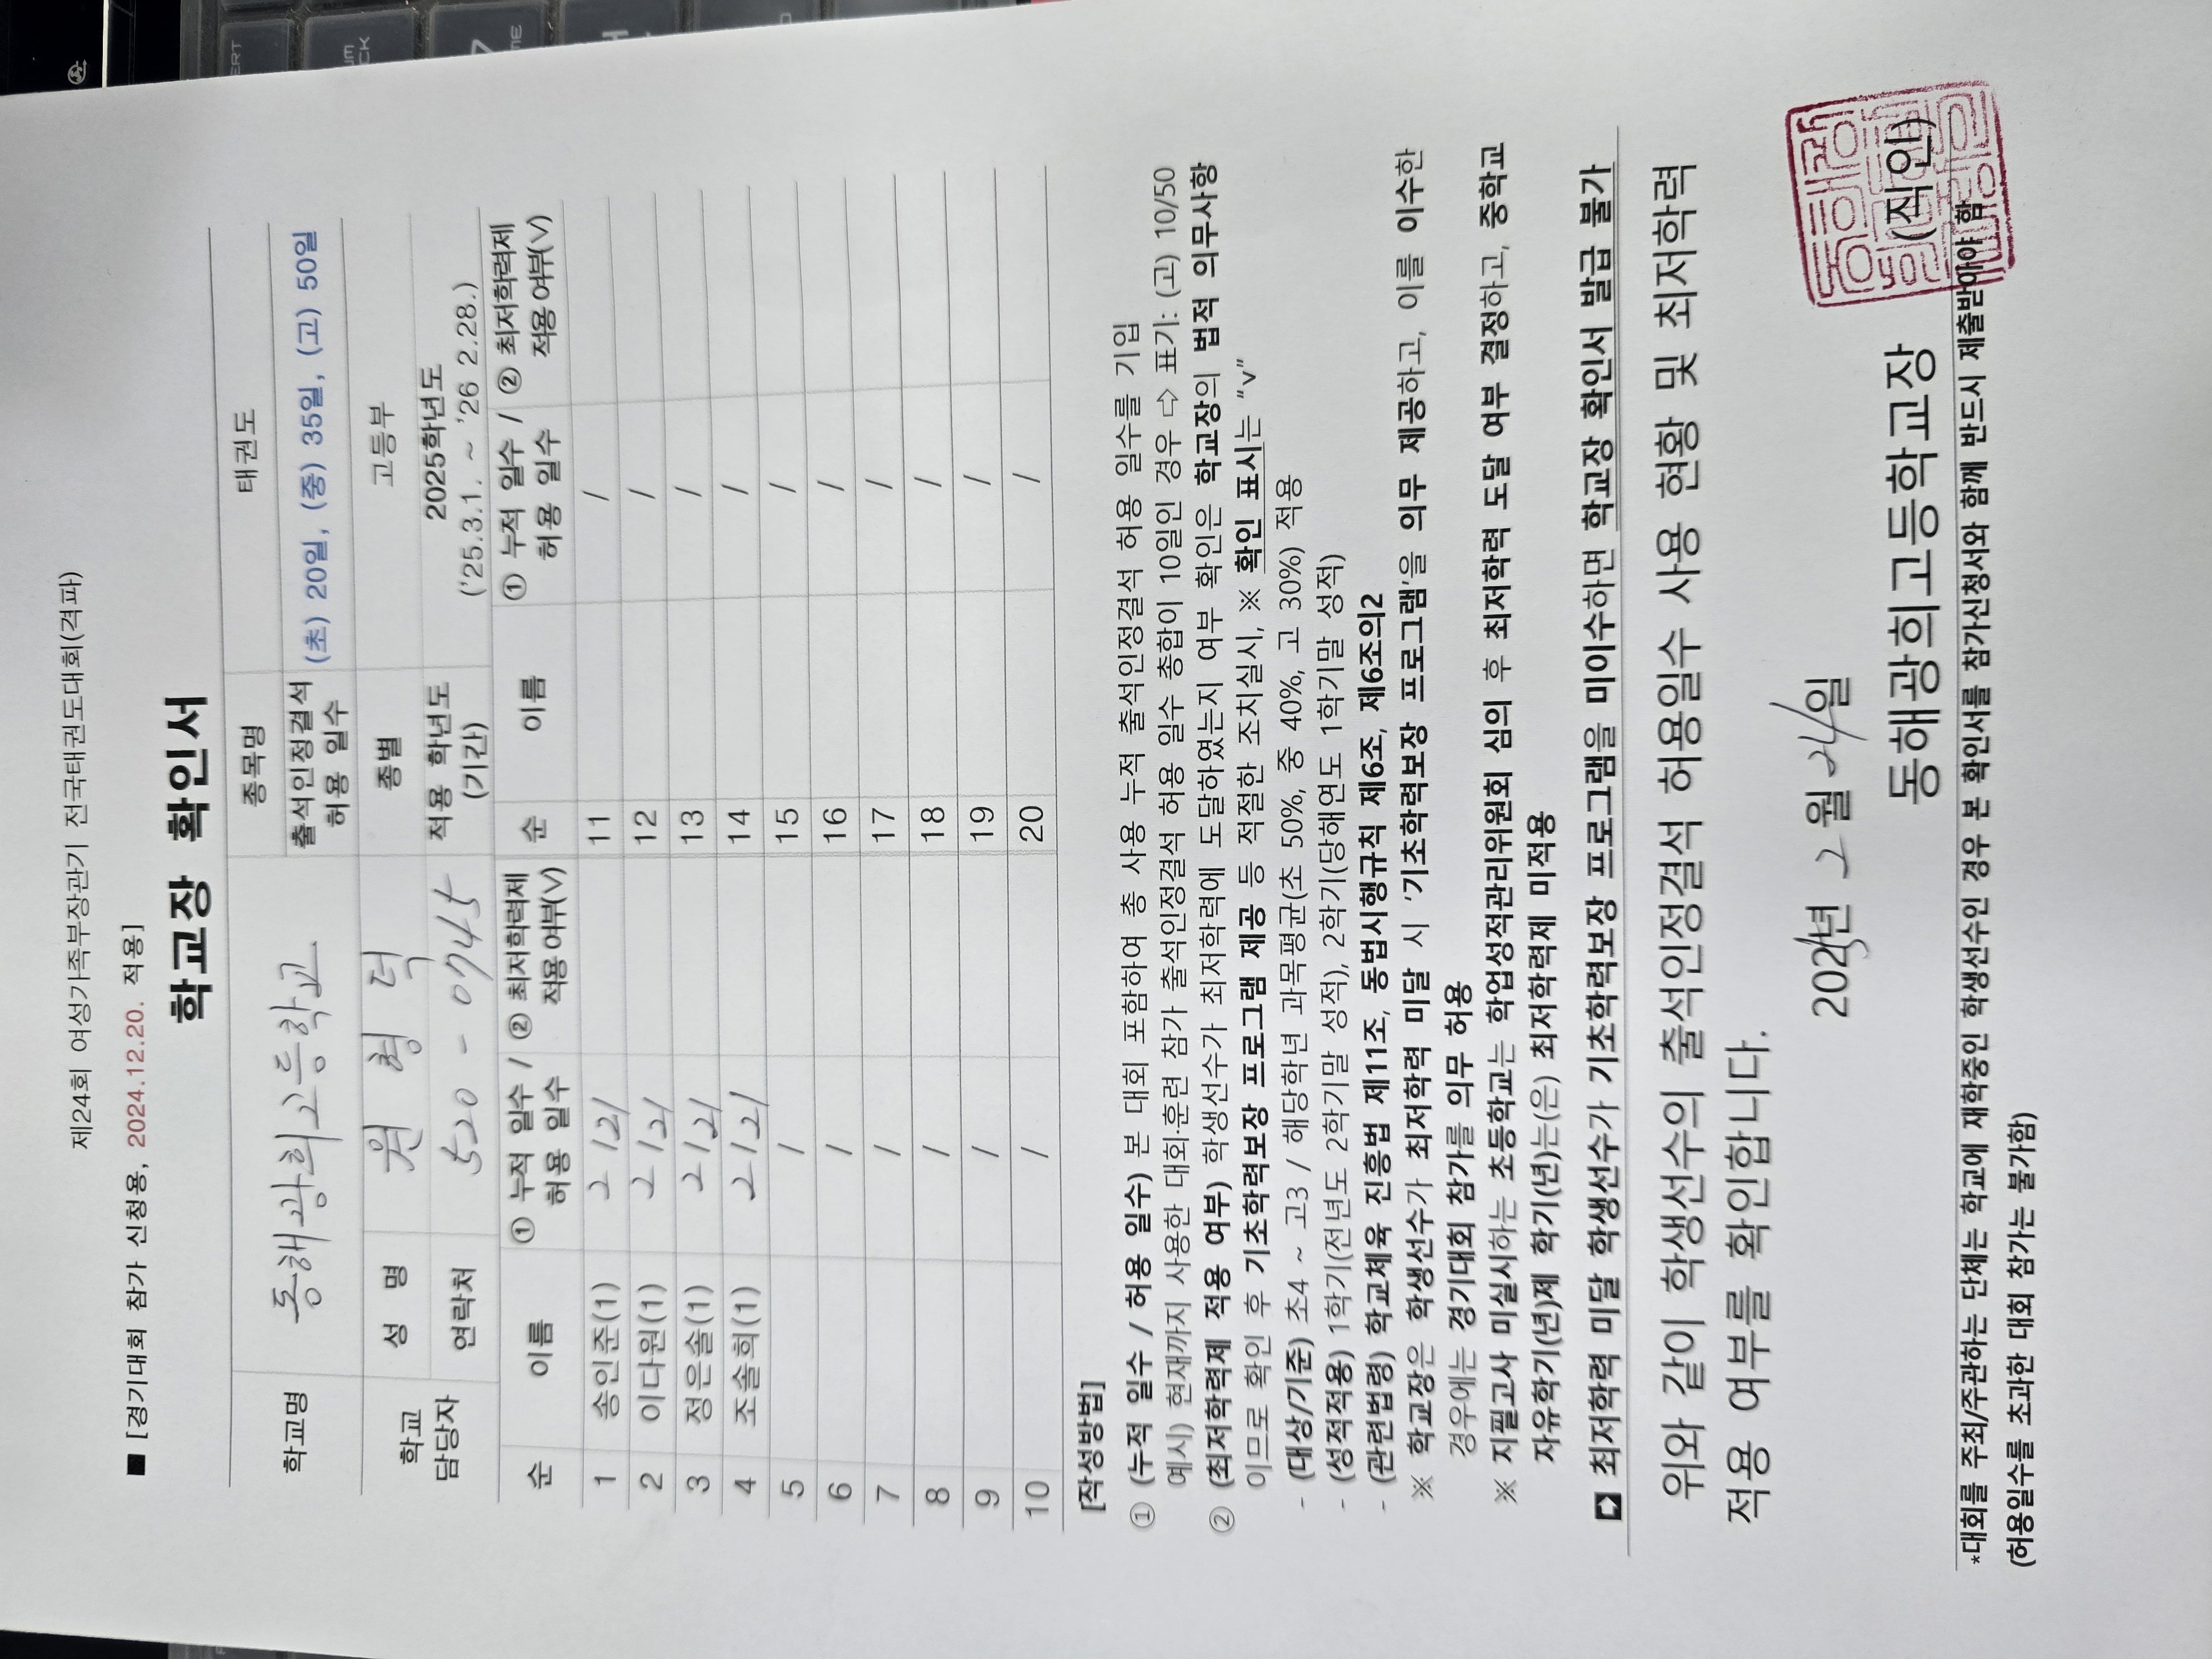 제24회 여성가족부장관기 전국태권도대회(격파)
■ [경기대회 참가 신청용, 2024.12.20. 적용]
학교장 확인서
학교명 동해광희고등학교 종목명 태권도
출석인정결석 허용 일수 (초) 20일, (중) 35일, (고) 50일
학교 담당자 성 명 원 형 덕 종별 고등부
연락처 520 - 0745 적용 학년도 (기간) 2025학년도 ('25.3.1. ~ '26 2.28.)
순 이름 ① 누적 일수 / 허용 일수 ② 최저학력제 적용 여부(V) 순 이름 ① 누적 일수 / 허용 일수 ② 최저학력제 적용 여부(V)
1 송인준(1) 2 / 21 11 /
2 이다원(1) 2 / 21 12 /
3 정은솔(1) 2 / 21 13 /
4 조솔희(1) 2 / 21 14 /
5 / 15 /
6 / 16 /
7 / 17 /
8 / 18 /
9 / 19 /
10 / 20 /
[작성방법]
① (누적 일수 / 허용 일수) 본 대회 포함하여 총 사용 누적 출석인정결석 허용 일수를 기입
예시) 현재까지 사용한 대회·훈련 참가 출석인정결석 허용 일수 총합이 10일인 경우 ⇨ 표기: (고) 10/50
② (최저학력제 적용 여부) 학생선수가 최저학력에 도달하였는지 여부 확인은 학교장의 법적 의무사항
이므로 확인 후 기초학력보장 프로그램 제공 등 적절한 조치실시, ※ 확인 표시는 "v"
- (대상/기준) 초4 ~ 고3 / 해당학년 과목평균(초 50%, 중 40%, 고 30%) 적용
- (성적적용) 1학기(전년도 2학기말 성적), 2학기(당해연도 1학기말 성적)
- (관련법령) 학교체육 진흥법 제11조, 동법시행규칙 제6조, 제6조의2
※ 학교장은 학생선수가 최저학력 미달 시 '기초학력보장 프로그램'을 의무 제공하고, 이를 이수한
경우에는 경기대회 참가를 의무 허용
※ 지필고사 미실시하는 초등학교는 학업성적관리위원회 심의 후 최저학력 도달 여부 결정하고, 중학교
자유학기(년)제 학기(년)는(은) 최저학력제 미적용
➡ 최저학력 미달 학생선수가 기초학력보장 프로그램을 미이수하면 학교장 확인서 발급 불가
위와 같이 학생선수의 출석인정결석 허용일수 사용 현황 및 최저학력
적용 여부를 확인합니다.
2025년 2월 24일
동해광희고등학교장 (직인)
*대회를 주최/주관하는 단체는 학교에 재학중인 학생선수인 경우 본 확인서를 참가신청서와 함께 반드시 제출받아야 함
(허용일수를 초과한 대회 참가는 불가함)